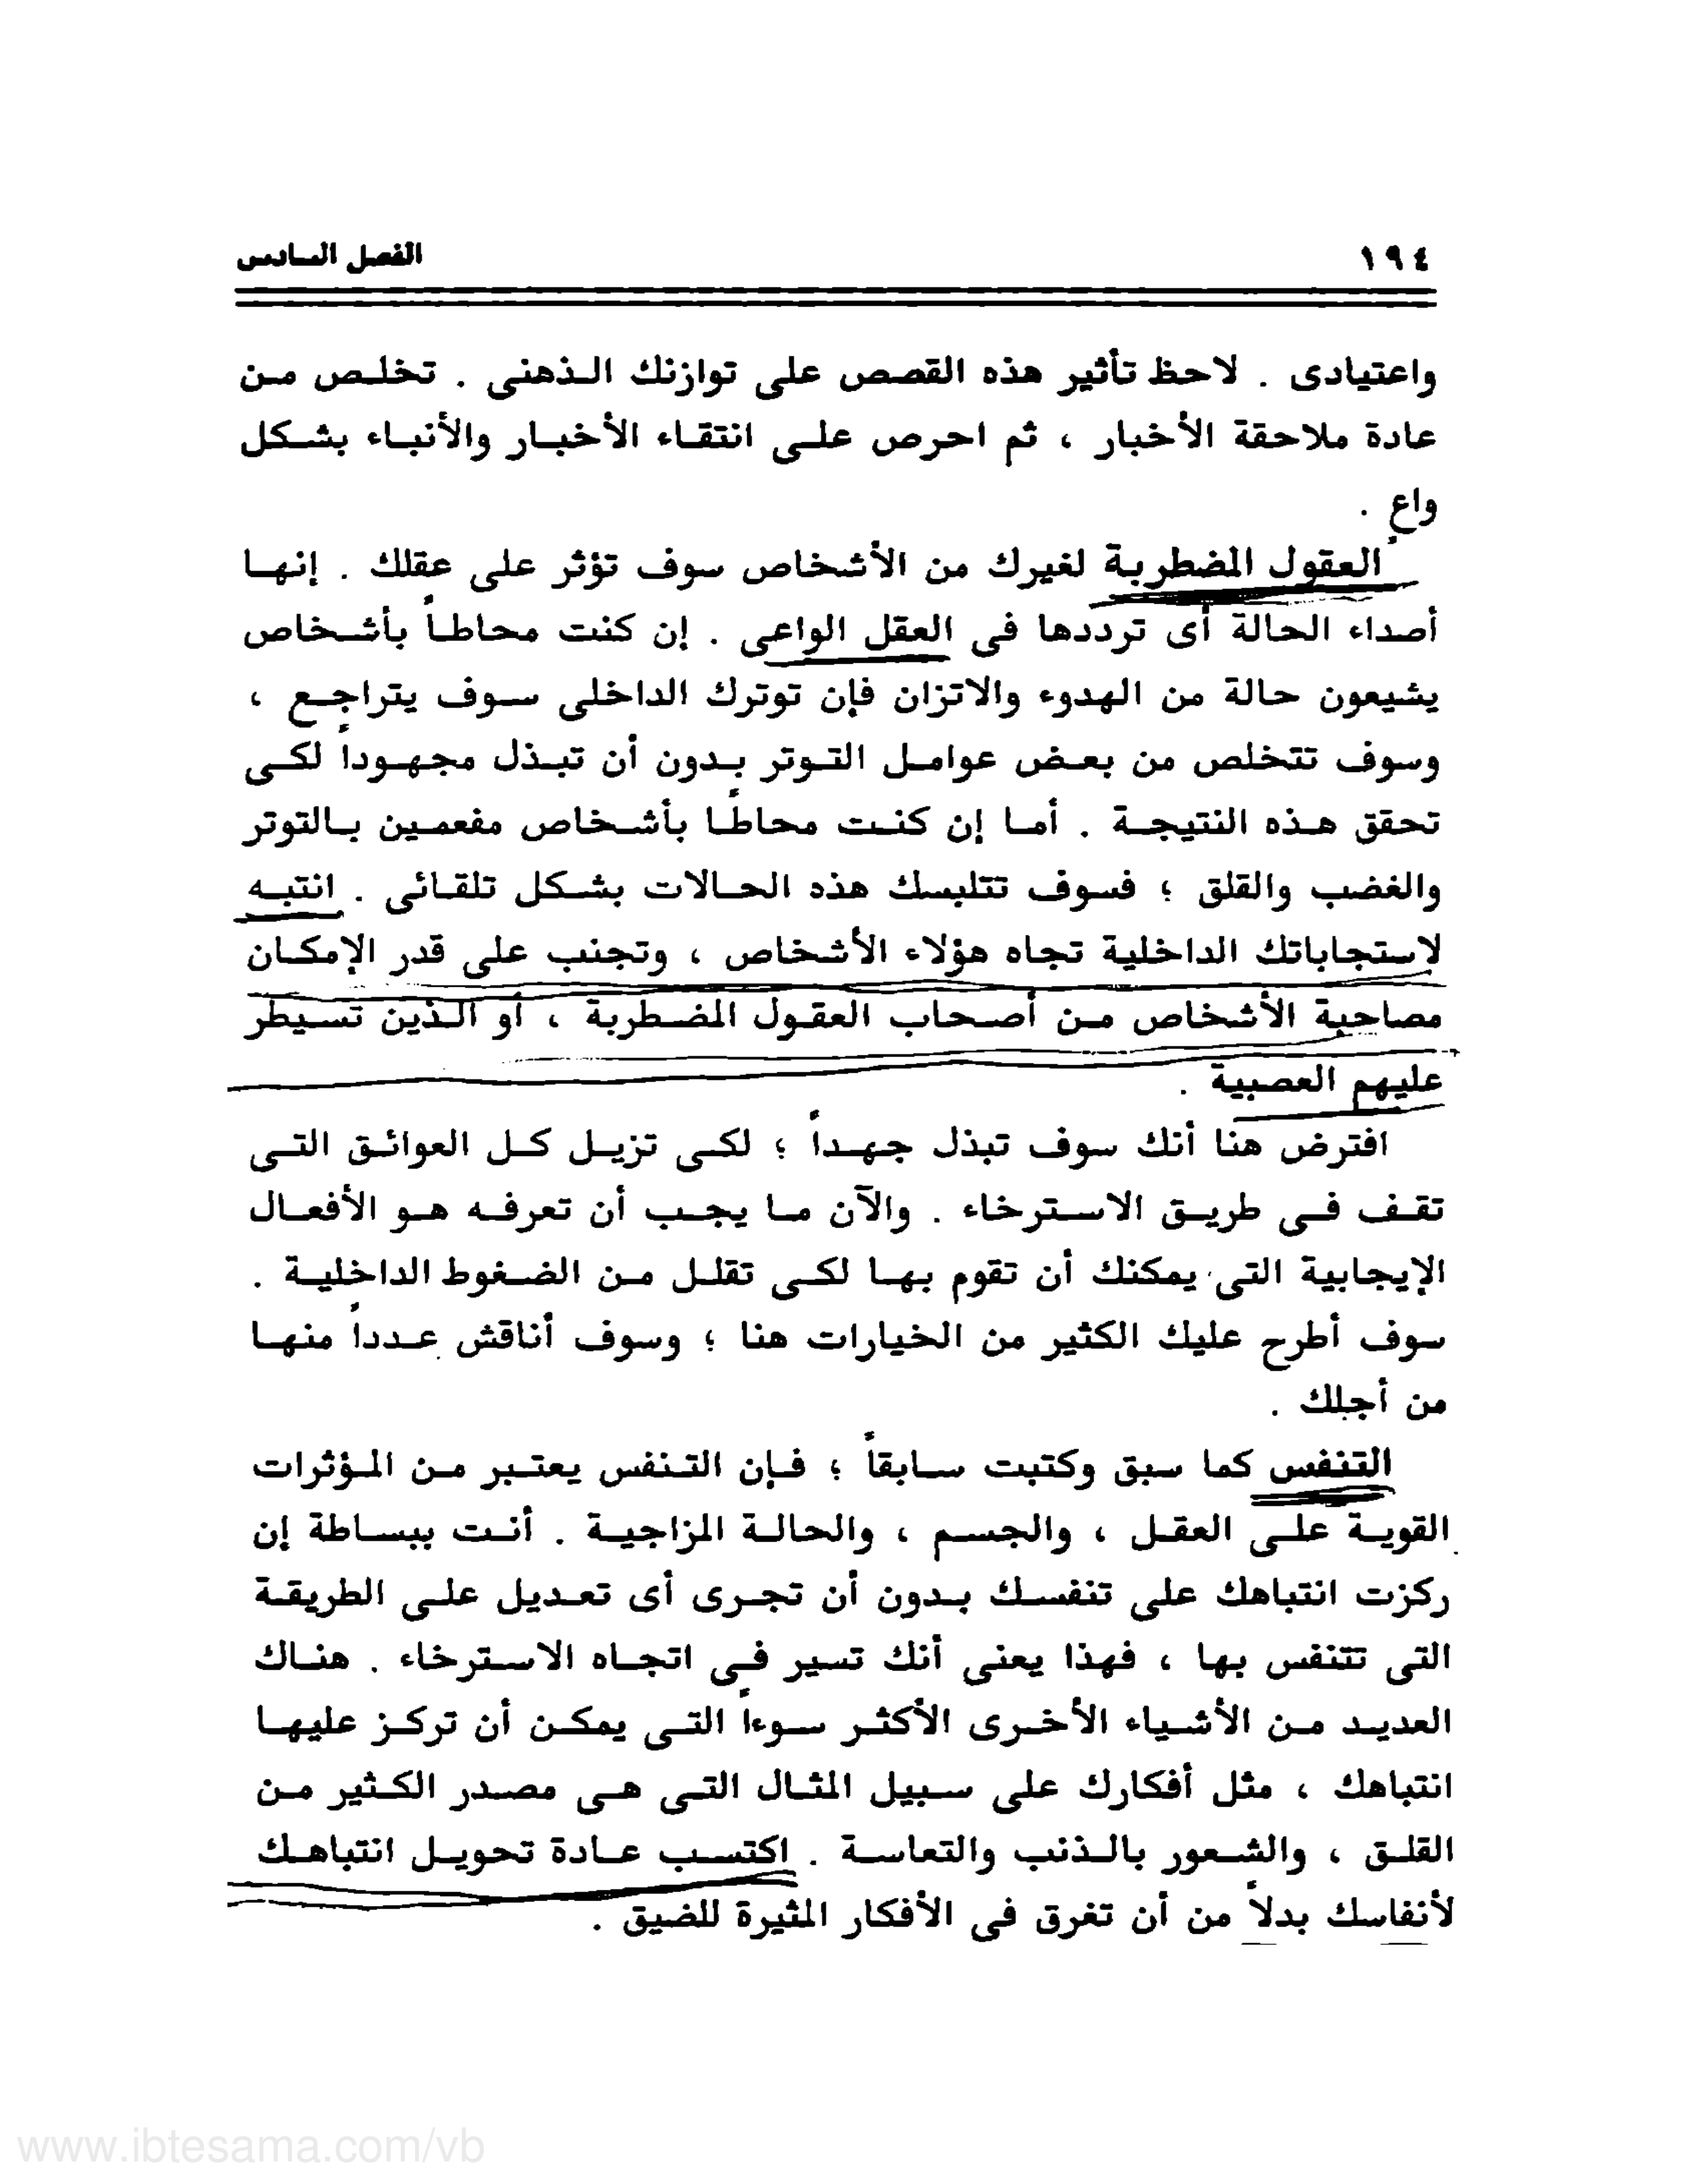 ١٩٤ الفصل السادس
واعتيادى . لاحظ تأثير هذه القصص على توازنك الذهنى . تخلص من
عادة ملاحقة الأخبار ، ثم احرص على انتقاء الأخبار والأنباء بشكل
واع .
العقول المضطربة لغيرك من الأشخاص سوف تؤثر على عقلك . إنها
أصداء الحالة أى ترددها فى العقل الواعى . إن كنت محاطاً بأشخاص
يشيعون حالة من الهدوء والاتزان فإن توترك الداخلى سوف يتراجع ،
وسوف تتخلص من بعض عوامل التوتر بدون أن تبذل مجهوداً لكى
تحقق هذه النتيجة . أما إن كنت محاطًا بأشخاص مفعمين بالتوتر
والغضب والقلق ؛ فسوف تتلبسك هذه الحالات بشكل تلقائى . انتبه
لاستجاباتك الداخلية تجاه هؤلاء الأشخاص ، وتجنب على قدر الإمكان
مصاحبة الأشخاص من أصحاب العقول المضطربة ، أو الذين تسيطر
عليهم العصبية .
افترض هنا أنك سوف تبذل جهداً ؛ لكى تزيل كل العوائق التى
تقف فى طريق الاسترخاء . والآن ما يجب أن تعرفه هو الأفعال
الإيجابية التى يمكنك أن تقوم بها لكى تقلل من الضغوط الداخلية .
سوف أطرح عليك الكثير من الخيارات هنا ؛ وسوف أناقش عدداً منها
من أجلك .
التنفس كما سبق وكتبت سابقاً ؛ فإن التنفس يعتبر من المؤثرات
القوية على العقل ، والجسم ، والحالة المزاجية . أنت ببساطة إن
ركزت انتباهك على تنفسك بدون أن تجرى أى تعديل على الطريقة
التى تتنفس بها ، فهذا يعنى أنك تسير فى اتجاه الاسترخاء . هناك
العديد من الأشياء الأخرى الأكثر سوءاً التى يمكن أن تركز عليها
انتباهك ، مثل أفكارك على سبيل المثال التى هى مصدر الكثير من
القلق ، والشعور بالذنب والتعاسة . اكتسب عادة تحويل انتباهك
لأنفاسك بدلاً من أن تغرق فى الأفكار المثيرة للضيق .
www.ibtesama.com/vb